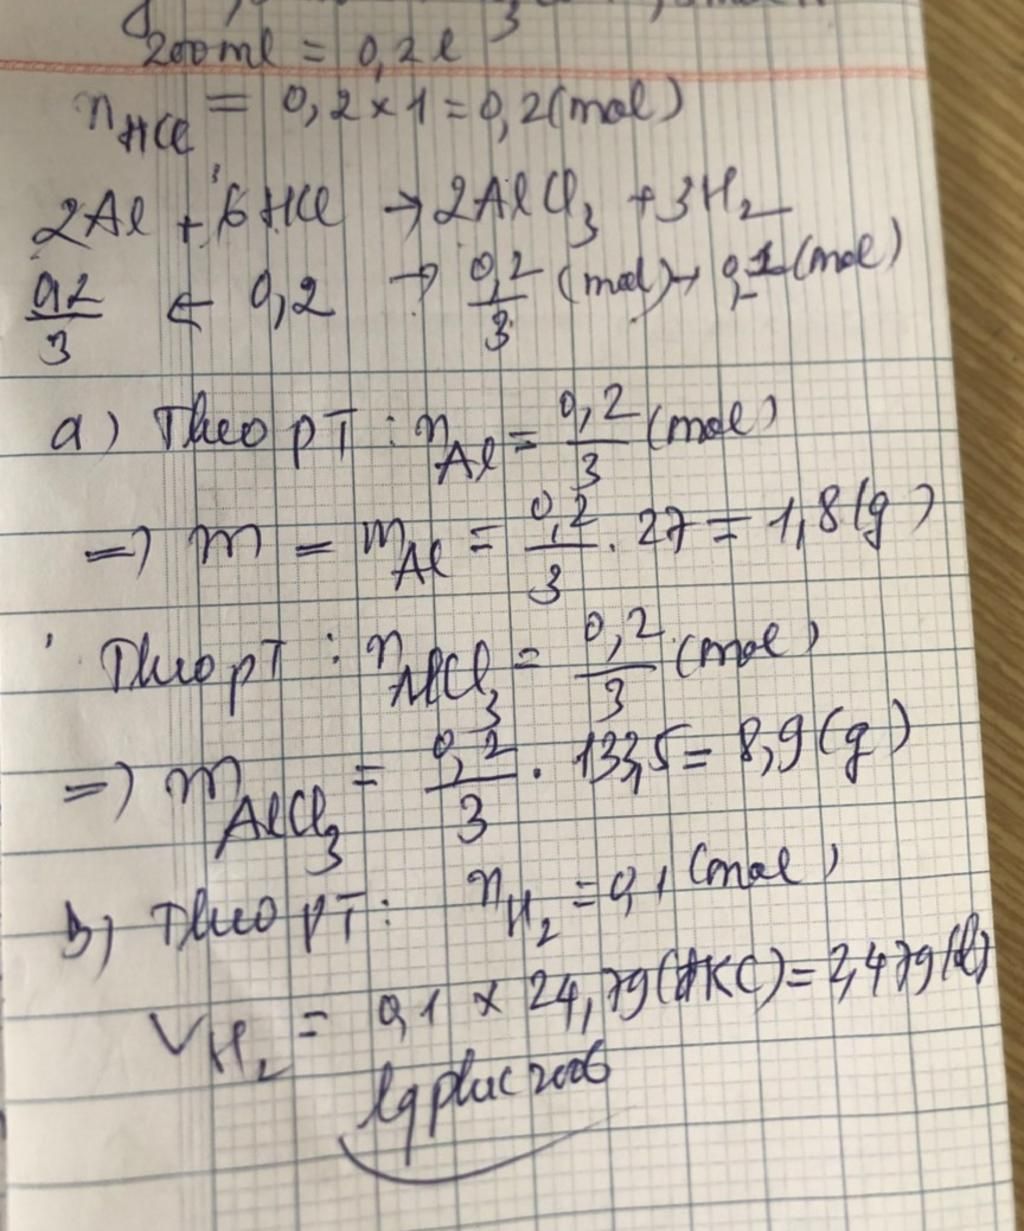 200ml = 0,2l
nHCl = 0,2 x 1 = 0,2 (mol)
2Al + 6HCl → 2AlCl3 + 3H2
0,2/3 ← 0,2 → 0,2/3 (mol) → 0,1 (mol)
a) Theo pT : nAl = 0,2/3 (mol)
=> m = mAl = 0,2/3 . 27 = 1,8 (g)
Theo pT : nAlCl3 = 0,2/3 (mol)
=> mAlCl3 = 0,2/3 . 133,5 = 8,9 (g)
b) Theo pT : nH2 = 0,1 (mol)
VH2 = 0,1 x 24,79 (đKC) = 2,479 (l)
lqphuc2006